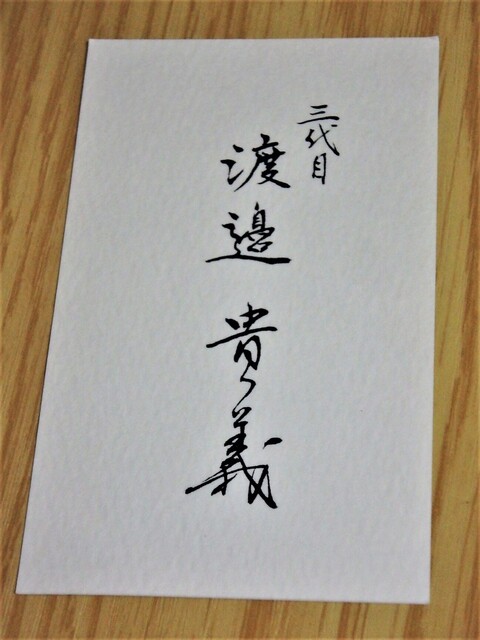 三代目
渡邉 貴義